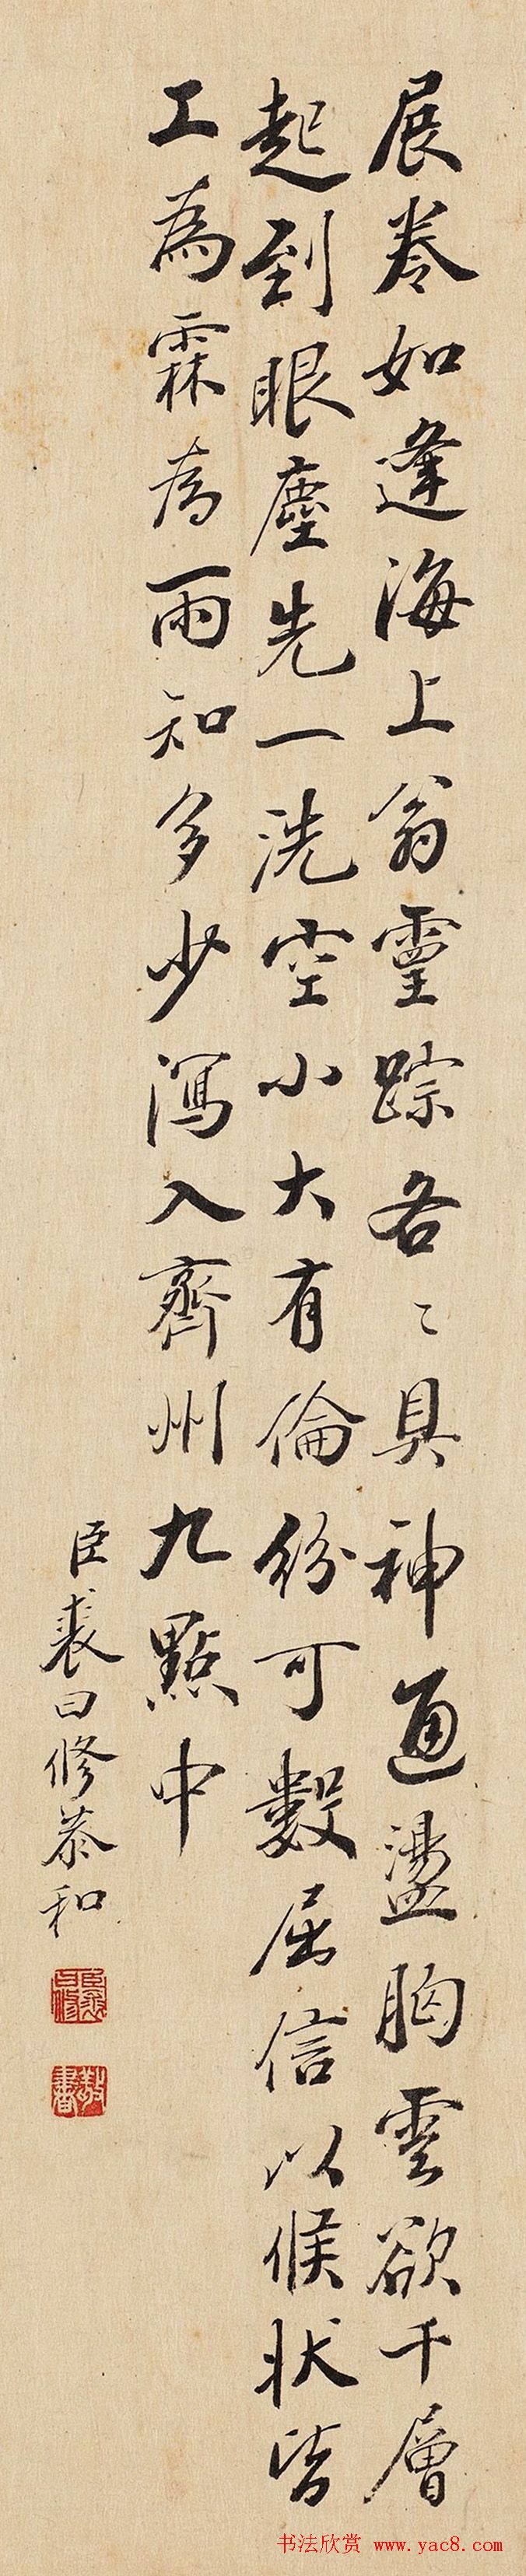 展卷如逢海上翁靈踪各〻具神通盪胸雲欲千層
起到眼塵先一洗空小大有倫紛可數屈信以候狀皆
工為霖為雨知多少瀉入齊州九點中
臣裘曰修恭和
臣裘曰修
敬書
书法欣赏 www.yac8.com